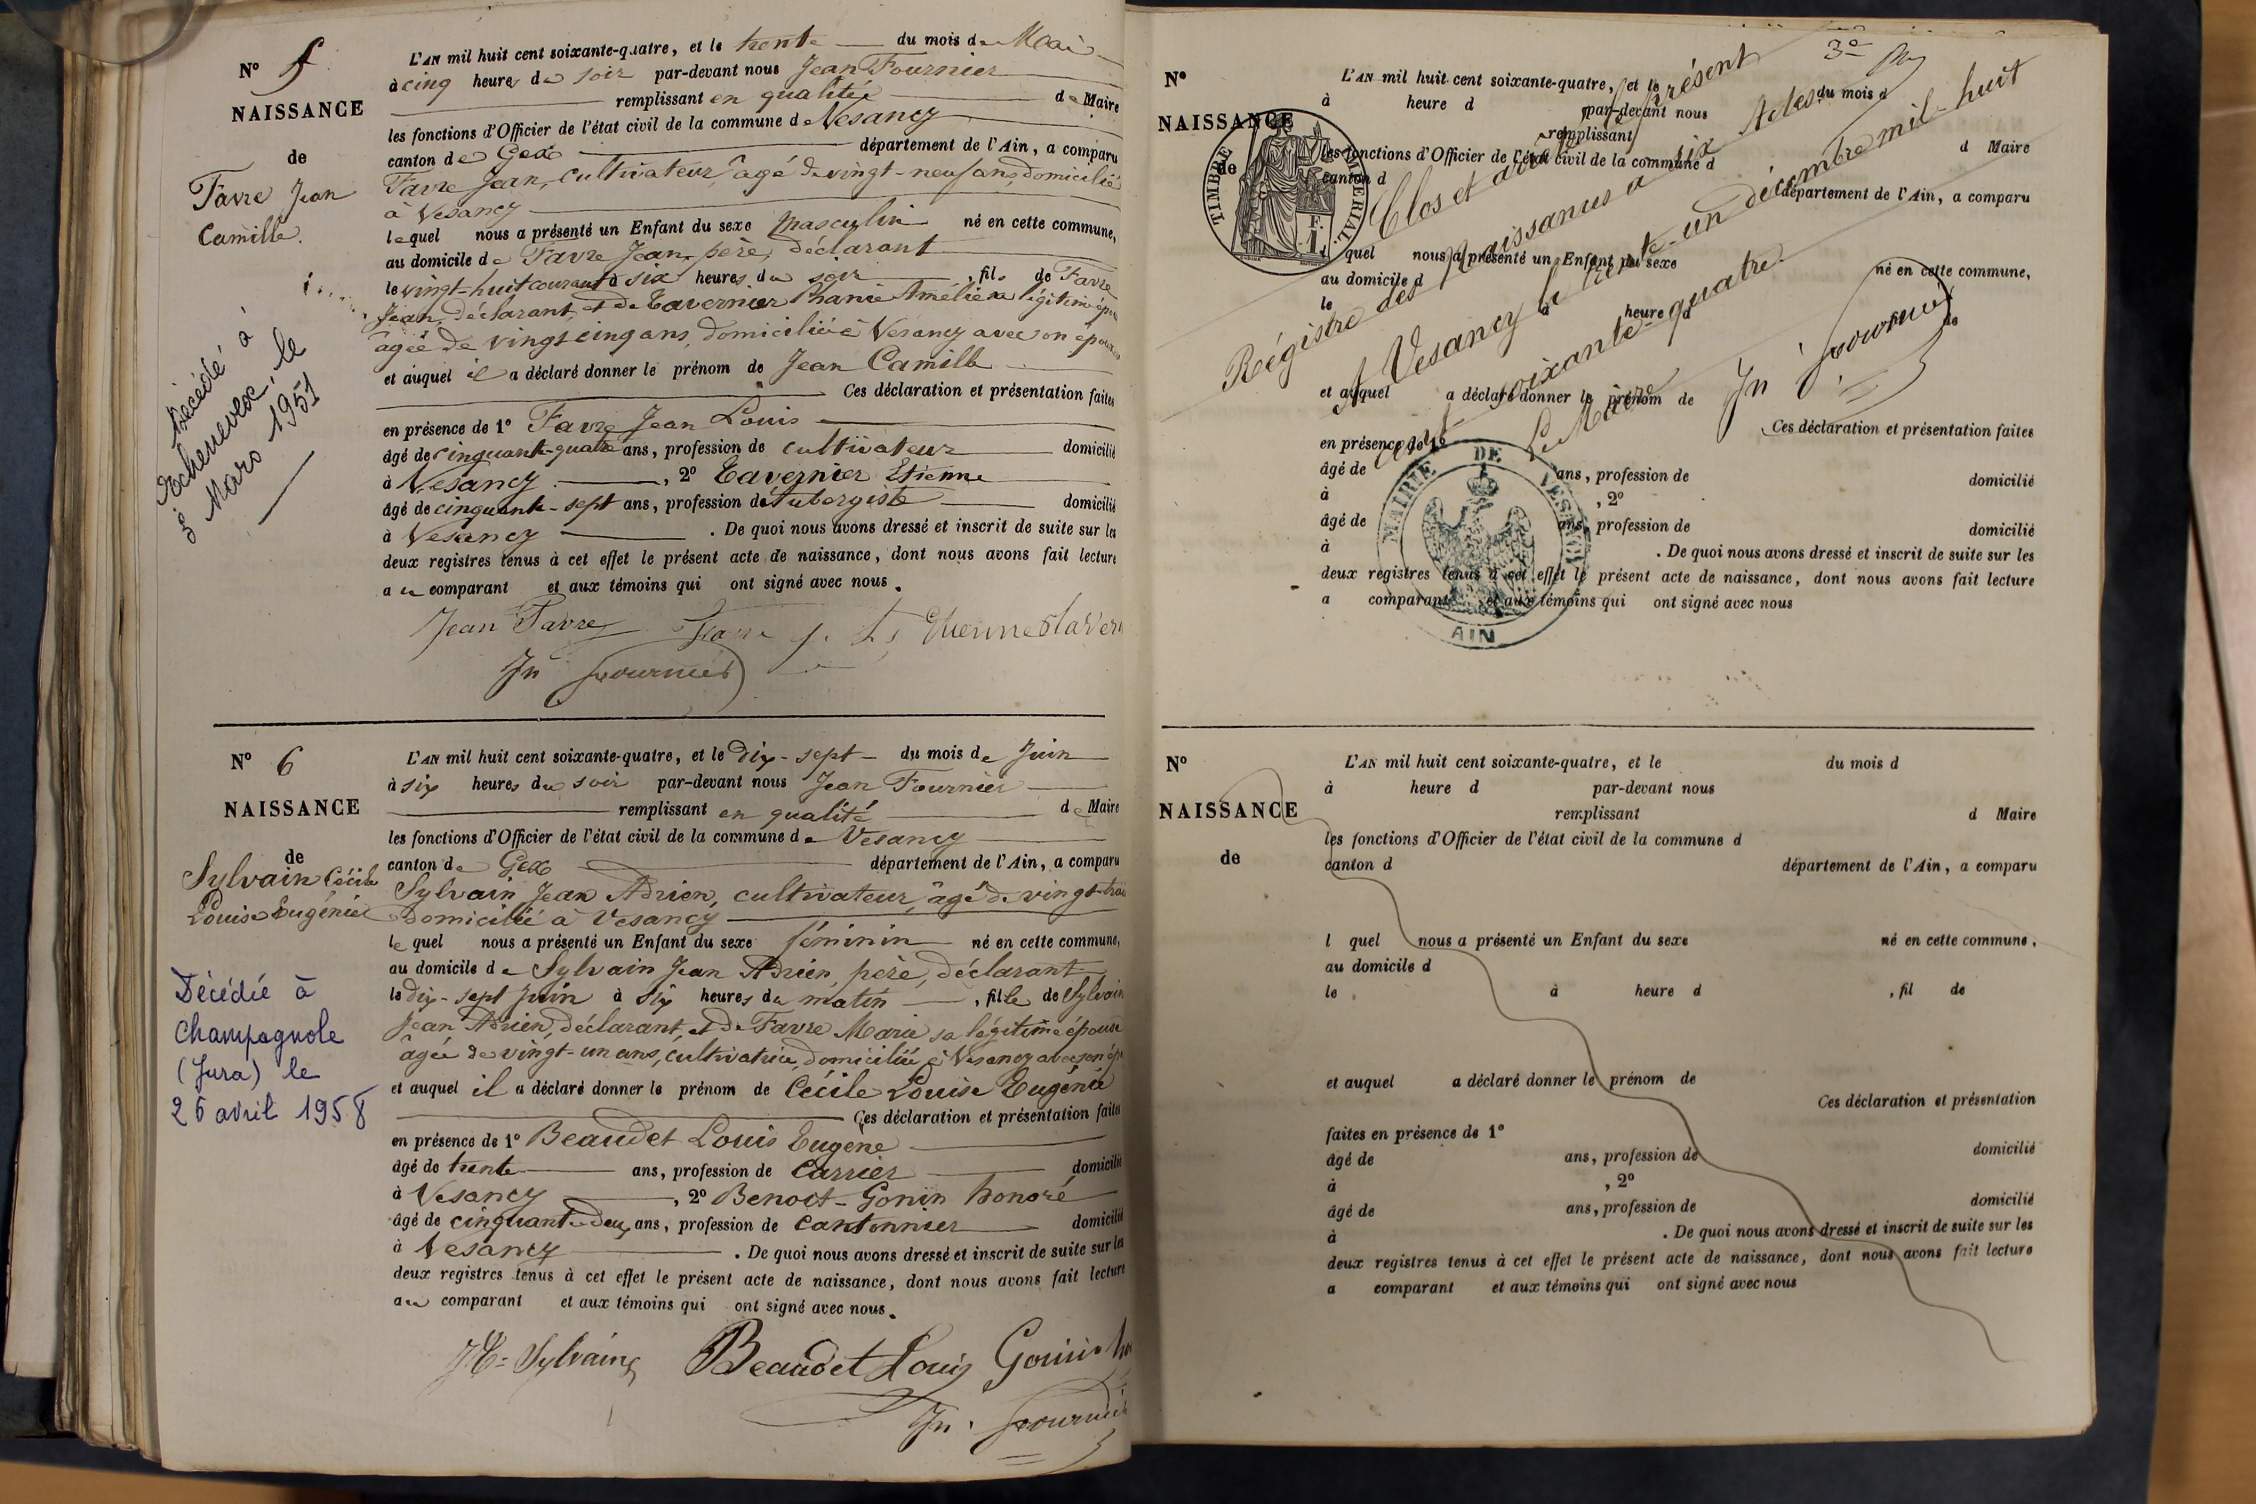 N° 5
NAISSANCE
de
Favre Jean
Camille.
Décédé à
Echenevex le
3 Mars 1951
L'AN mil huit cent soixante-quatre, et le trente du mois de Mai
à cinq heures du soir par-devant nous Jean Fournier
remplissant en qualité de Maire
les fonctions d'Officier de l'état civil de la commune de Vesancy
canton de Gex département de l'Ain, a comparu
Favre Jean, cultivateur, âgé de vingt-neuf ans, domicilié
à Vesancy
lequel nous a présenté un Enfant du sexe masculin né en cette commune,
au domicile de Favre Jean, père, déclarant
le vingt-huit courant à six heures du soir, fils de Favre
Jean, déclarant, et de Tavernier Phanie Amélie sa légitime
âgée de vingt cinq ans, domiciliée à Vesancy avec son époux
et auquel il a déclaré donner le prénom de Jean Camille
Ces déclaration et présentation faites
en présence de 1° Favre Jean Louis
âgé de cinquante-quatre ans, profession de cultivateur domicilié
à Vesancy, 2° Tavernier Etienne
âgé de cinquante-sept ans, profession d'Aubergiste domicilié
à Vesancy. De quoi nous avons dressé et inscrit de suite sur les
deux registres tenus à cet effet le présent acte de naissance, dont nous avons fait lecture
au comparant et aux témoins qui ont signé avec nous.
Jean Favre Favre j. Ls Etienne Taver
Jn Fournier
N° 6
NAISSANCE
de
Sylvain Cécile
Louise Eugénie
Décédée à
Champagnole
(Jura) le
26 avril 1958
L'AN mil huit cent soixante-quatre, et le dix-sept du mois de Juin
à six heures du soir par-devant nous Jean Fournier
remplissant en qualité de Maire
les fonctions d'Officier de l'état civil de la commune de Vesancy
canton de Gex département de l'Ain, a comparu
Sylvain Jean Adrien, cultivateur, âgé de vingt-trois
domicilié à Vesancy
lequel nous a présenté un Enfant du sexe féminin né en cette commune,
au domicile de Sylvain Jean Adrien, père, déclarant
le dix-sept Juin à six heures du matin, fille de Sylvain
Jean Adrien, déclarant, et de Favre Marie sa légitime épouse
âgée de vingt-un ans, cultivatrice, domiciliée à Vesancy avec son ép
et auquel il a déclaré donner le prénom de Cécile Louise Eugénie
Ces déclaration et présentation faites
en présence de 1° Beaudet Louis Eugène
âgé de trente ans, profession de Carrier domicilié
à Vesancy, 2° Benoit-Gonin honoré
âgé de cinquante-deux ans, profession de Cantonnier domicilié
à Vesancy. De quoi nous avons dressé et inscrit de suite sur les
deux registres tenus à cet effet le présent acte de naissance, dont nous avons fait lecture
au comparant et aux témoins qui ont signé avec nous.
Sylvain Beaudet Louis Gonin ho
Jn. Fournier
3e
N°
NAISSANCE
de
TIMBRE IMPERIAL.
F. 1
L'AN mil huit cent soixante-quatre, et le du mois d
à heure d par-devant nous
remplissant d Maire
les fonctions d'Officier de l'état civil de la commune d
canton d département de l'Ain, a comparu
l quel nous a présenté un Enfant du sexe né en cette commune,
au domicile d
le à heure d de
et auquel a déclaré donner le prénom de
Ces déclaration et présentation faites
en présence de 1°
âgé de ans, profession de domicilié
à , 2°
âgé de ans, profession de domicilié
à . De quoi nous avons dressé et inscrit de suite sur les
deux registres tenus à cet effet le présent acte de naissance, dont nous avons fait lecture
a comparant et aux témoins qui ont signé avec nous
Clos et arrêté le présent
Régistre des Naissances à six Actes.
A Vesancy le trente-un décembre mil-huit
cent soixante-quatre.
Le Maire
Jn Fournier
MAIRIE DE VESANCY
AIN
N°
NAISSANCE
de
L'AN mil huit cent soixante-quatre, et le du mois d
à heure d par-devant nous
remplissant d Maire
les fonctions d'Officier de l'état civil de la commune d
canton d département de l'Ain, a comparu
l quel nous a présenté un Enfant du sexe né en cette commune,
au domicile d
le à heure d , fil de
et auquel a déclaré donner le prénom de
Ces déclaration et présentation
faites en présence de 1°
âgé de ans, profession de domicilié
à , 2°
âgé de ans, profession de domicilié
à . De quoi nous avons dressé et inscrit de suite sur les
deux registres tenus à cet effet le présent acte de naissance, dont nous avons fait lecture
a comparant et aux témoins qui ont signé avec nous